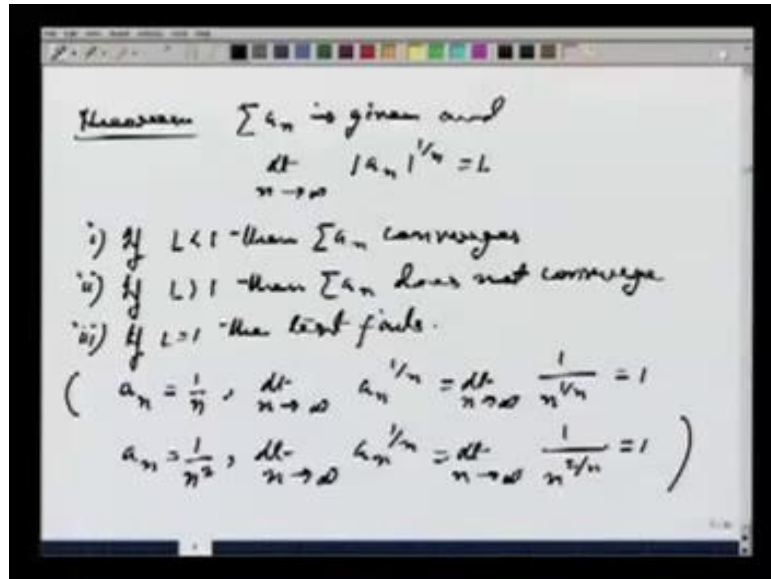 Theorem Σ aₙ is given and
lt n→∞ |aₙ|^{1/n} = L
i) If L<1 then Σ aₙ converges
ii) If L>1 then Σ aₙ does not converge
iii) If L=1 the test fails.
( aₙ = 1/n, lt n→∞ aₙ^{1/n} = lt n→∞ 1/n^{1/n} = 1
aₙ = 1/n², lt n→∞ aₙ^{1/n} = lt n→∞ 1/n^{2/n} = 1 )